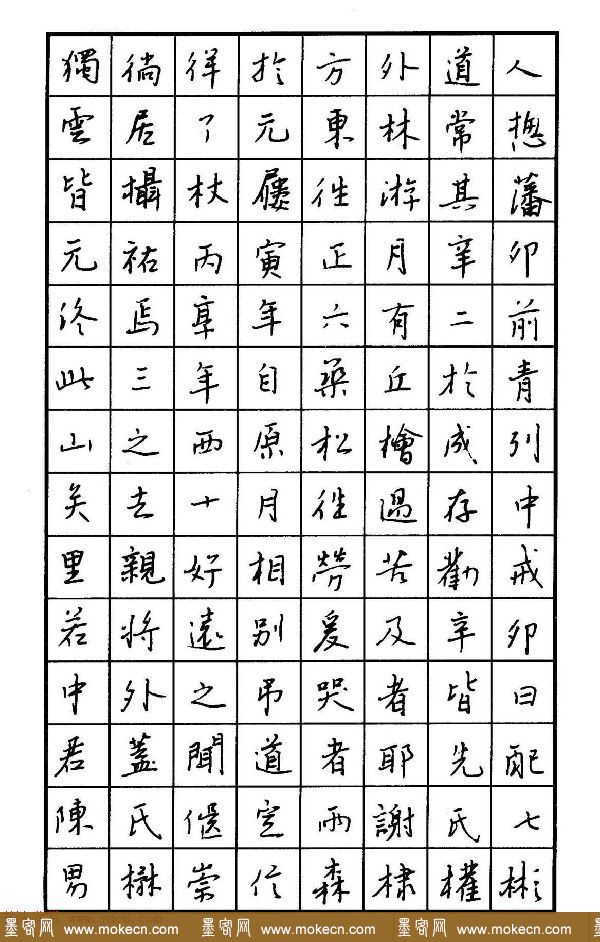 獨徜徉於方外道人
雲居了元東林常揔
皆攝杖屨往游其藩
元祐丙寅正月辛卯
終焉享年六有二前
此三年自築丘於青
山之西原松檜成列
矣去十月往過存中
里親好相勞苦勸戒
若將遠別爰及辛卯
中外之弔哭者皆曰
君蓋聞道者耶先配
陳氏室兩謝氏七
男楙崇信森棣權彬
墨客网 www.mokecn.com 墨客网 www.mokecn.com 墨客网 www.mokecn.com